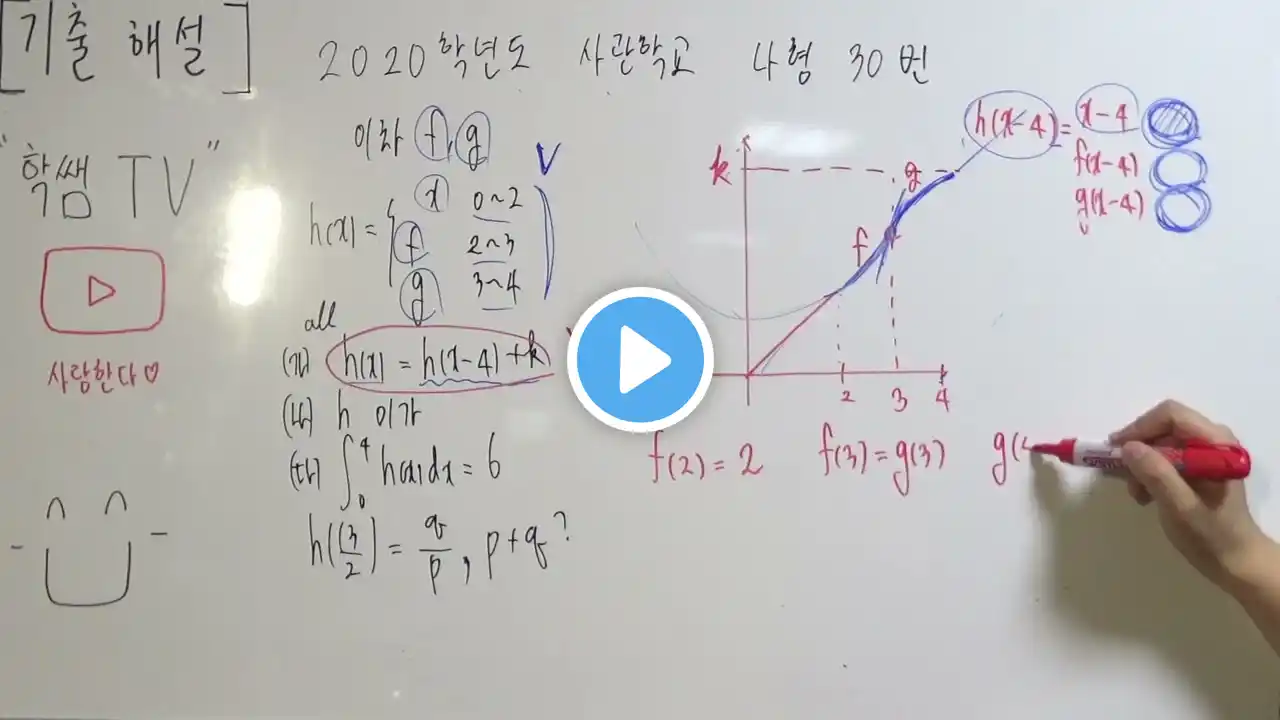 [기출 해설]
2020학년도 사관학교 나형 30번
"학쌤 TV"
사랑한다♡
이차 f, g
h(x) = {
x 0~2
f 2~3
g 3~4
V
all
(가) h(x) = h(x-4)+k
(나) h 미가
(다) ∫₀⁴ h(x)dx = 6
h(13/2) = q/p, p+q?
k
f
g
2 3 4
h(x-4) = x-4
f(x-4)
g(x-4)
f(2) = 2 f(3) = g(3) g(